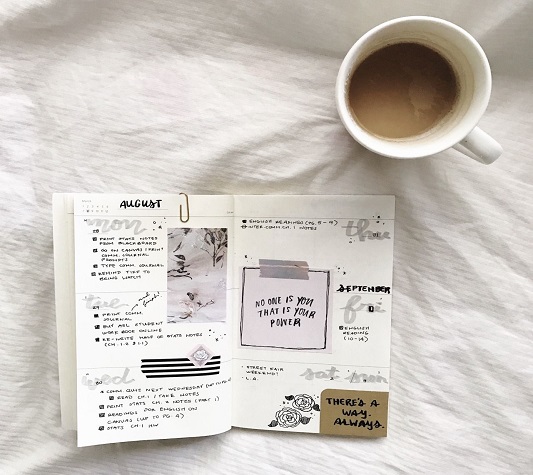 AUGUST
mon
28
PRINT STATS NOTES
FROM BLACKBOARD
GO ON CANVAS / PRINT
COMM. JOURNAL
PROMPTS
TYPE COMM. JOURNAL
REMIND TYLE TO
BRING WATCH
tue
29
PRINT COMM.
JOURNAL
BUY ASL STUDENT
WORK BOOK ONLINE
RE-WRITE HALF OF STATS NOTES
(CH. 1.2 & 1.1)
wed
30
COMM. QUIZ NEXT WEDNESDAY
READ CH. 1 / TAKE NOTES
PRINT STATS CH. 2 NOTES (PART 1)
READINGS FOR ENGLISH ON
CANVAS (UP TO PG. 4)
STATS CH 1 HW
ENGLISH READINGS (PG. 5 - 9)
INTER-COMM CH. 1 NOTES
thu
NO ONE IS YOU
THAT IS YOUR
POWER
SEPTEMBER
fri
1
ENGLISH
READING
(10-14)
sat sun
- STREET FAIR
WEEKEND!
- L.A.
THERE'S A
WAY.
ALWAYS.